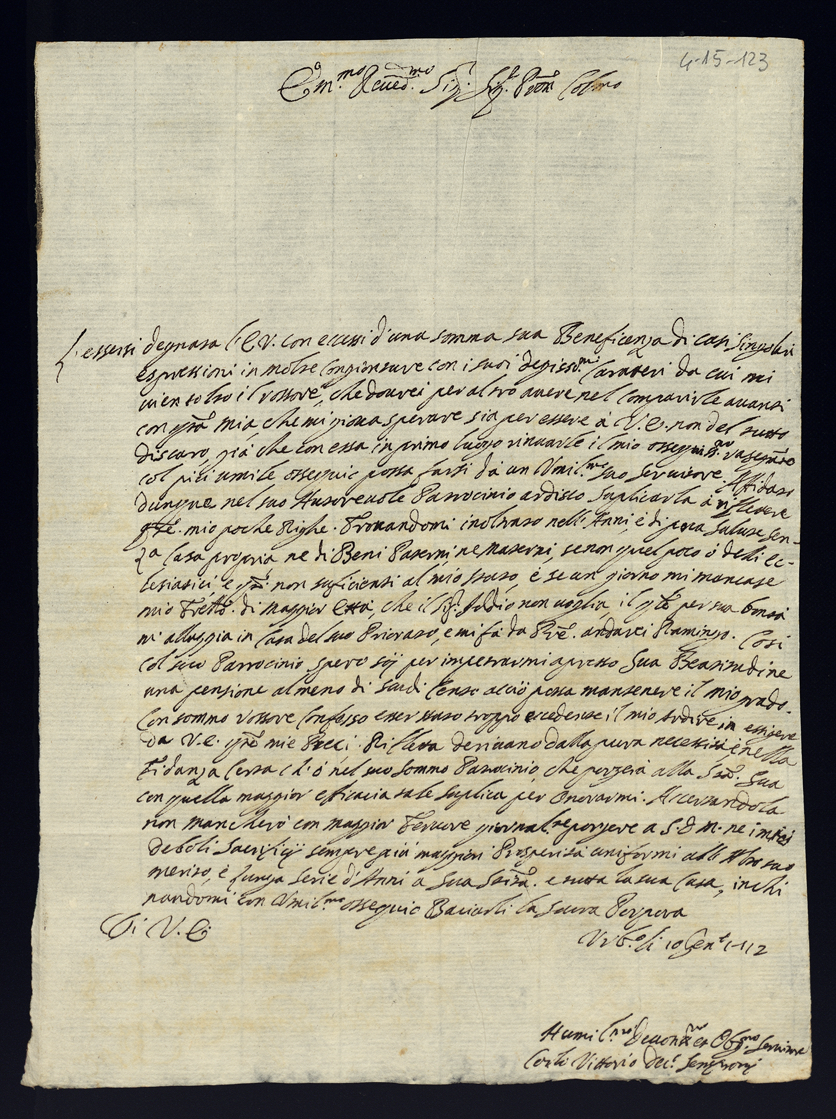 4-15-123
Em.mo Reved.mo Sig. Sig. Pron Col.mo
L'essersi degnata l'E V. con eccessi d'una somma sua Beneficenza di cosi Singolari
espressioni in molte Congionture con i suoi degniss.mi Caratteri da cui mi
vien tolto il rossore, che dovrei per altro avere nel comparirle avanti
con q.sta mia, che mi giova sperare sia per essere à V. E. non del tutto
discaro, già che con essa in primo luogo rinuarle il mio
col più umile ossequio possa farsi da un Umil.mo suo Servitore. Affidato
dunque nel suo Autorevole Patrocinio ardisco suplicarla à rilevere
q.ste mie poche Righe. Trovandomi inoltrato nell'Anni, e di poca Salute sen-
za Casa propria, ne di Beni Paterni, ne Materni, se non quel poco ò delli Ec-
lesiastici e q.sti non suficienti al mio stato, e se un giorno mi mancase
mio Fratello di Maggior Età, che il Sig. Iddio non voglia, il q.le per sua bontà
m'alloggia in Casa del suo Priorato, e mi fà da Pre. andarei Ramingo. Così
col suo Patrocinio spero sij per impetrarmi apresso Sua Beatitudine
una pensione almeno di Scudi Cento acciò possa mantenere il mio grado.
Con sommo rossore Confesso esser stato troppo eccedente il mio Ardire in
da V. E. q.ste mie Preci. Rifletta derivano dalla pura necessità, e nella
Fidanza Certa ch'ò nel suo Sommo Patrocinio, che porgerà alla San. Sua
con quella maggior efficacia tale Suplica per Onorarmi. Accertandola
non mancherò con maggior Fervore giornal.te porgere a S. D. M. ne i miei
deboli Sacrificij sempre più maggiori Prosperità uniformi all'Alto suo
merito, e lunga Serie d'Anni a Sua Santà. e tutta la sua Casa, inchi
nandomi con Umil.mo ossequio Baciarli la Sacra Porpora
Di V. E.
Urb.o li 10 Gen.o 1712
Humil.mo Devot.mo et Obg.mo Servitore
Carlo Vittorio Sempronij